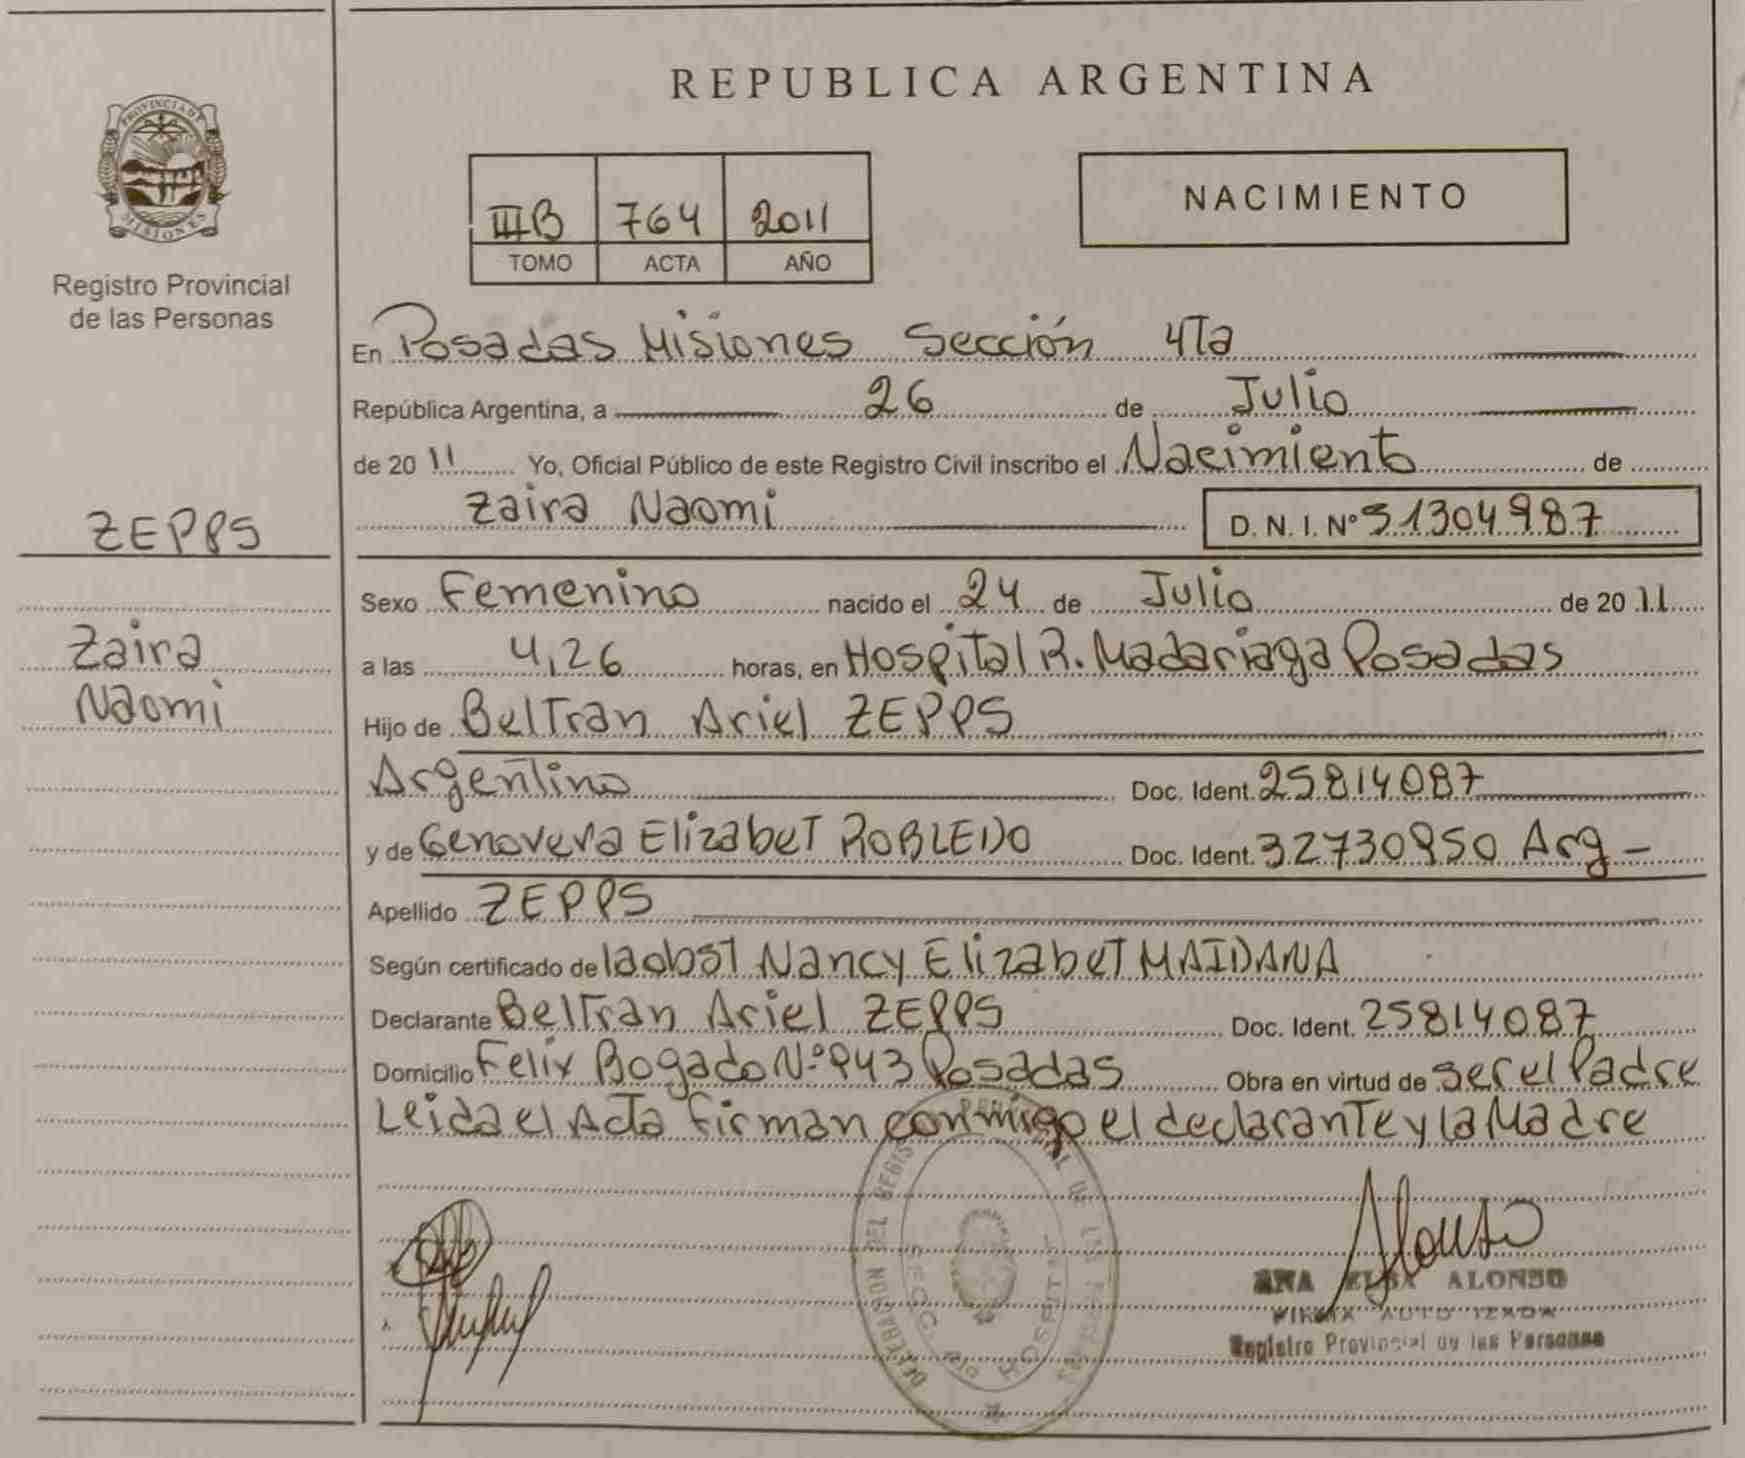 PROVINCIA DE
MISIONES
Registro Provincial
de las Personas
ZEPPS
Zaira
Naomi
REPUBLICA ARGENTINA
IIIB 764 2011
TOMO ACTA AÑO
NACIMIENTO
En Posadas Misiones Sección 4Ta
República Argentina, a 26 de Julio
de 20 11 Yo, Oficial Público de este Registro Civil inscribo el Nacimiento de
Zaira Naomi D. N. I. Nº 51304987
Sexo Femenino nacido el 24 de Julio de 20 11
a las 4,26 horas, en Hospital R. Madariaga Posadas
Hijo de Beltran Ariel ZEPPS
Argentino Doc. Ident. 25814087
y de Genoveva Elizabet ROBLEDO Doc. Ident. 32730950 Arg-
Apellido ZEPPS
Según certificado de la obst Nancy Elizabet MAIDANA
Declarante Beltran Ariel ZEPPS Doc. Ident. 25814087
Domicilio Felix Bogado Nº 943 Posadas Obra en virtud de ser el Padre
Leida el Acta firman conmigo el declarante y la Madre
Alonso
ANA ELSA ALONSO
FIRMA AUTORIZADA
Registro Provincial de las Personas